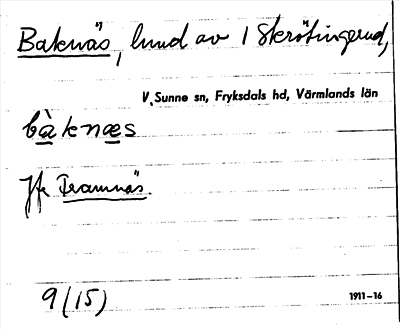 Baknäs, lund av 1 Skrötingerud,
V. Sunne sn, Fryksdals hd, Värmlands län
bàknæs
Jfr Framnäs.
9(15)
1911-16